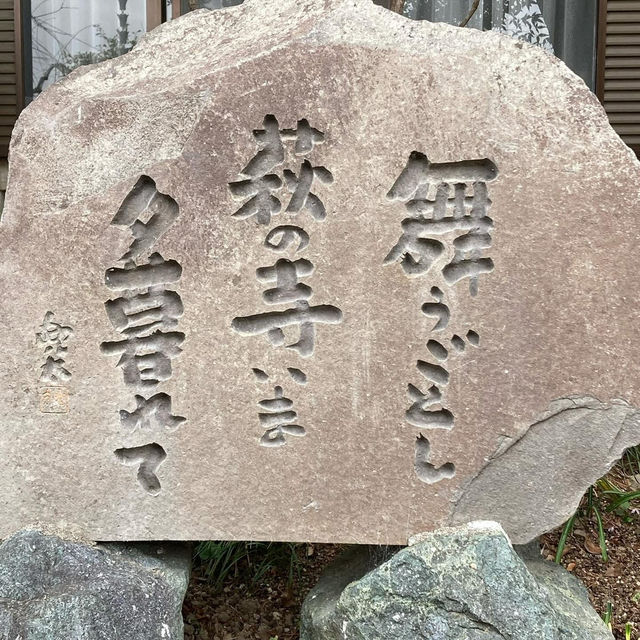 舞うごとし
萩の寺いま
夕暮れて